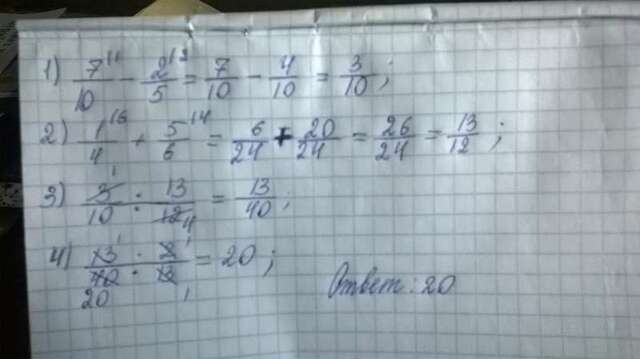 1) 7/10 - 2/5 = 7/10 - 4/10 = 3/10;
2) 1/4 + 5/6 = 6/24 + 20/24 = 26/24 = 13/12;
3) 3/10 : 13/12 = 13/40;
4) 13/40 : 2/13 = 20;
Ответ: 20